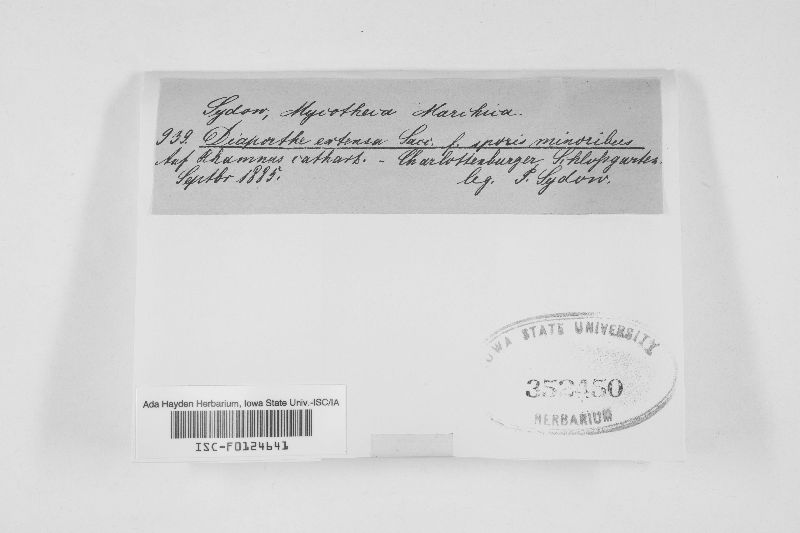 Sydow, Mycotheca Marchica.
939. Diaporthe extensa Sacc. f. sporis minoribus
Auf Rhamnus cathart. - Charlottenburger Schloßgarten.
Septbr 1885. leg. P. Sydow.
IOWA STATE UNIVERSITY
352450
HERBARIUM
Ada Hayden Herbarium, Iowa State Univ.-ISC/IA
ISC-F0124641